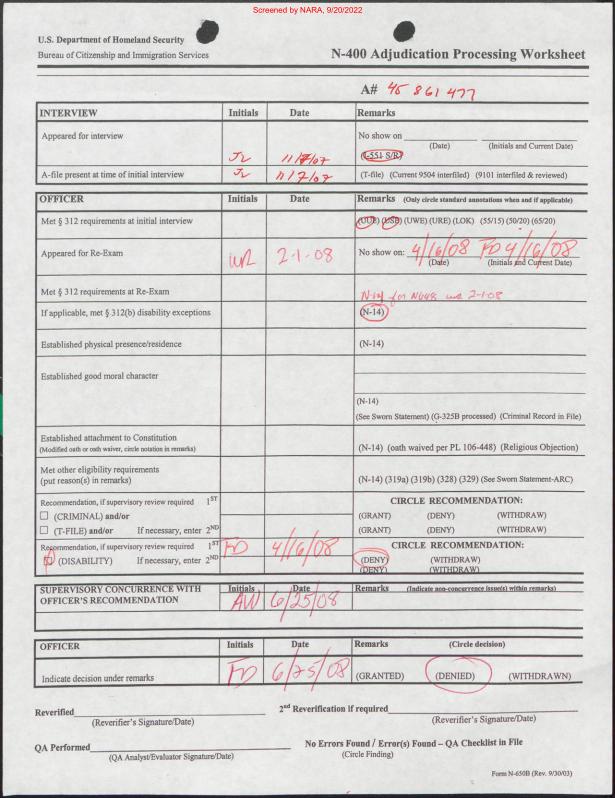 Screened by NARA, 9/20/2022
U.S. Department of Homeland Security
Bureau of Citizenship and Immigration Services
N-400 Adjudication Processing Worksheet
A# 45 861 477
INTERVIEW Initials Date Remarks
Appeared for interview JL 11/7/07 No show on
(Date) (Initials and Current Date)
(I-551 S/R)
A-file present at time of initial interview JL 11/7/07 (T-file) (Current 9504 interfiled) (9101 interfiled & reviewed)
OFFICER Initials Date Remarks (Only circle standard annotations when and if applicable)
Met § 312 requirements at initial interview (UUE) (USB) (UWE) (URE) (LOK) (55/15) (50/20) (65/20)
Appeared for Re-Exam 2-1-08 No show on: 4/16/08 FD 4/16/08
(Date) (Initials and Current Date)
Met § 312 requirements at Re-Exam N-14 for N648 2-1-08
If applicable, met § 312(b) disability exceptions (N-14)
Established physical presence/residence (N-14)
Established good moral character
(N-14)
(See Sworn Statement) (G-325B processed) (Criminal Record in File)
Established attachment to Constitution
(Modified oath or oath waiver, circle notation in remarks) (N-14) (oath waived per PL 106-448) (Religious Objection)
Met other eligibility requirements
(put reason(s) in remarks) (N-14) (319a) (319b) (328) (329) (See Sworn Statement-ARC)
Recommendation, if supervisory review required 1ST CIRCLE RECOMMENDATION:
(CRIMINAL) and/or (GRANT) (DENY) (WITHDRAW)
(T-FILE) and/or If necessary, enter 2ND (GRANT) (DENY) (WITHDRAW)
Recommendation, if supervisory review required 1ST FD 4/16/08 CIRCLE RECOMMENDATION:
(DISABILITY) If necessary, enter 2ND (DENY) (WITHDRAW)
(DENY) (WITHDRAW)
SUPERVISORY CONCURRENCE WITH Initials Date Remarks (Indicate non-concurrence issue(s) within remarks)
OFFICER'S RECOMMENDATION AW 6/25/08
OFFICER Initials Date Remarks (Circle decision)
Indicate decision under remarks FD 6/25/08 (GRANTED) (DENIED) (WITHDRAWN)
Reverified 2nd Reverification if required
(Reverifier's Signature/Date) (Reverifier's Signature/Date)
QA Performed No Errors Found / Error(s) Found – QA Checklist in File
(QA Analyst/Evaluator Signature/Date) (Circle Finding)
Form N-650B (Rev. 9/30/03)